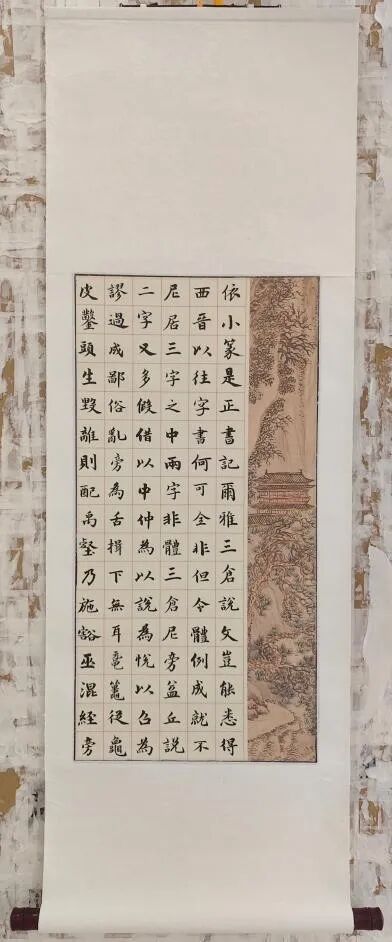 依小篆是正書記爾雅三倉說文豈能悉得
西晉以往字書何可全非但令體例成就不
尼居三字之中兩字非體三倉尼旁益丘說
二字又多假借以中仲為以說為悅以召為
謬過成鄙俗亂旁為舌揖下無耳黿鼉從龜
皮鑿頭生毀離則配禹壑乃施豁巫混經旁